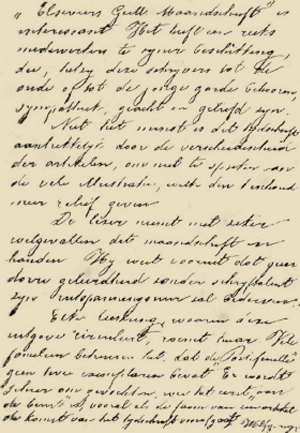 „Elseviers Geill. Maandschrift" is
interessant. Het heeft een reeks
medewerkers te zijner beschikking,
die, hetzij deze schrijvers tot de
oude of tot de jonge garde behooren,
sympathiek, geacht en geliefd zijn.
Niet het minst is dit tijdschrift
aantrekkelijk door de verscheidenheid
der artikelen, om niet te spreken van
de vele illustratie, welke den inhoud
meer relief geven.
De lezer neemt met zeker
welgevallen dit maandschrift in
handen. Hij weet vooruit dat geen
dorre geleerdheid zonder schrijftalent
zijn ontspanningsuur zal bederven.
Elke leeskring, waarin deze
uitgave circuleert, roemt haar. Vele
families betreuren het, dat de "portefeuille"
geen twee exemplaren bevat. Er wordt
om gevochten, wie het eerst, aan
de beurt is, vooral als de faam van
de komst van het tijdschrift